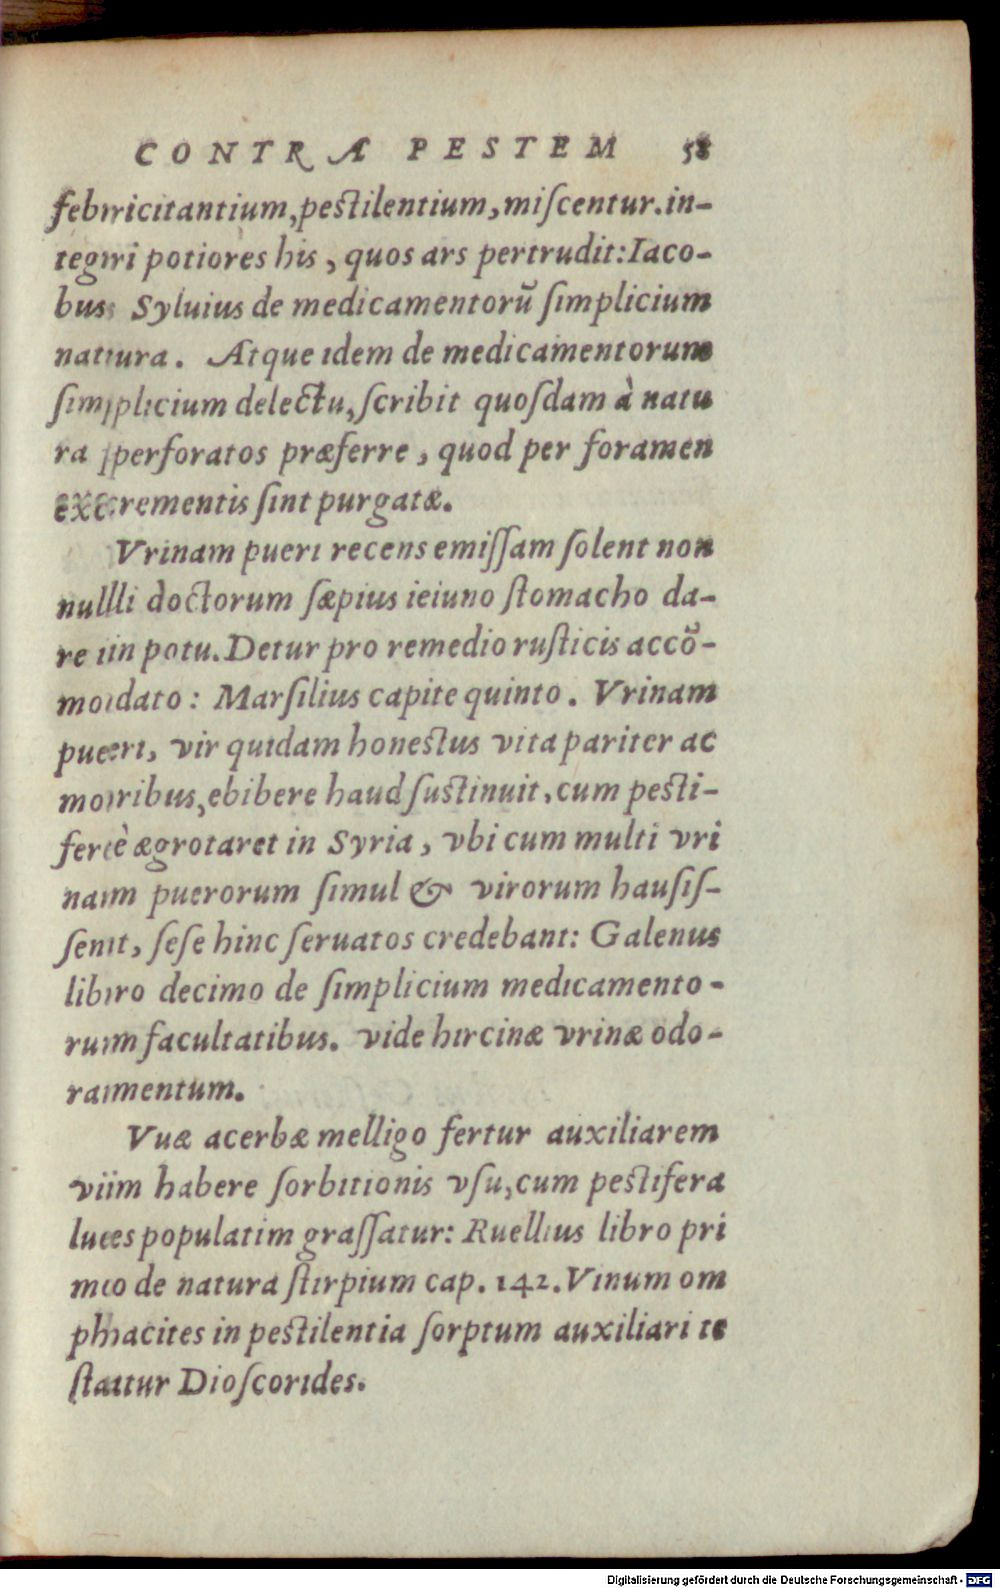 CONTRA PESTEM 58
febricitantium, pestilentium, miſcentur. in-
tegri potiores his, quos ars pertrudit: Iaco-
bus Syluius de medicamentorū ſimplicium
natura. Atque idem de medicamentorum
ſimplicium delectu, ſcribit quoſdam à natu
ra perforatos præferre, quod per foramen
excrementis ſint purgatæ.
Vrinam pueri recens emiſſam ſolent non
nulli doctorum ſæpius ieiuno ſtomacho da-
re in potu. Detur pro remedio ruſticis accō-
modato: Marſilius capite quinto. Vrinam
pueri, vir quidam honeſtus vita pariter ac
moribus, ebibere haud ſuſtinuit, cum peſti-
ferè ægrotaret in Syria, vbi cum multi vri
nam puerorum ſimul & virorum hauſiſ-
ſent, ſeſe hinc ſeruatos credebant: Galenus
libro decimo de ſimplicium medicamento-
rum facultatibus. vide hircinæ vrinæ odo-
ramentum.
Vuæ acerbæ melligo fertur auxiliarem
vim habere ſorbitionis vſu, cum peſtifera
lues populatim graſſatur: Ruellius libro pri
mo de natura ſtirpium cap. 142. Vinum om
phacites in peſtilentia ſorptum auxiliari te
ſtatur Dioſcorides.
Digitalisierung gefördert durch die Deutsche Forschungsgemeinschaft - DFG